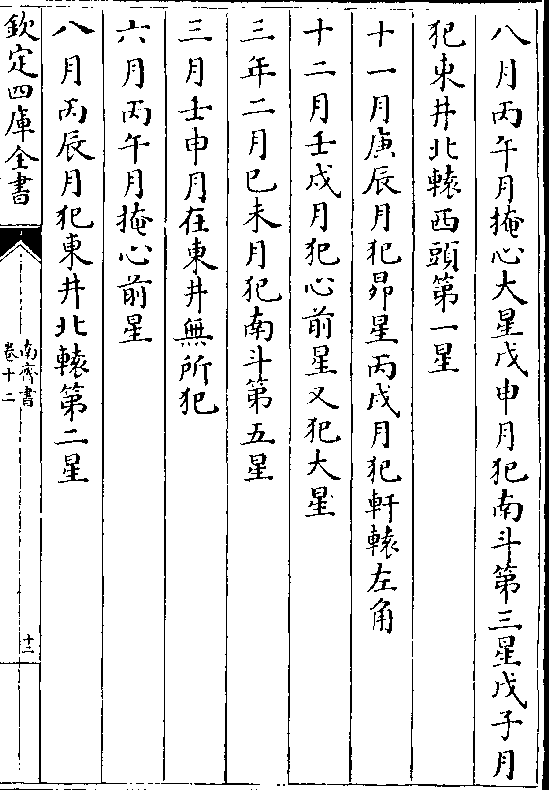 八月丙午月掩心大星戊申月犯南斗第三星戊子月
犯東井北轅西頭第一星
十一月庚辰月犯昴星丙戌月犯軒轅左角
十二月壬戌月犯心前星又犯大星
三年二月巳未月犯南斗第五星
三月壬申月在東井無所犯
六月丙午月掩心前星
八月丙辰月犯東井北轅第二星
欽定四庫全書
南齊書
卷十二
十二